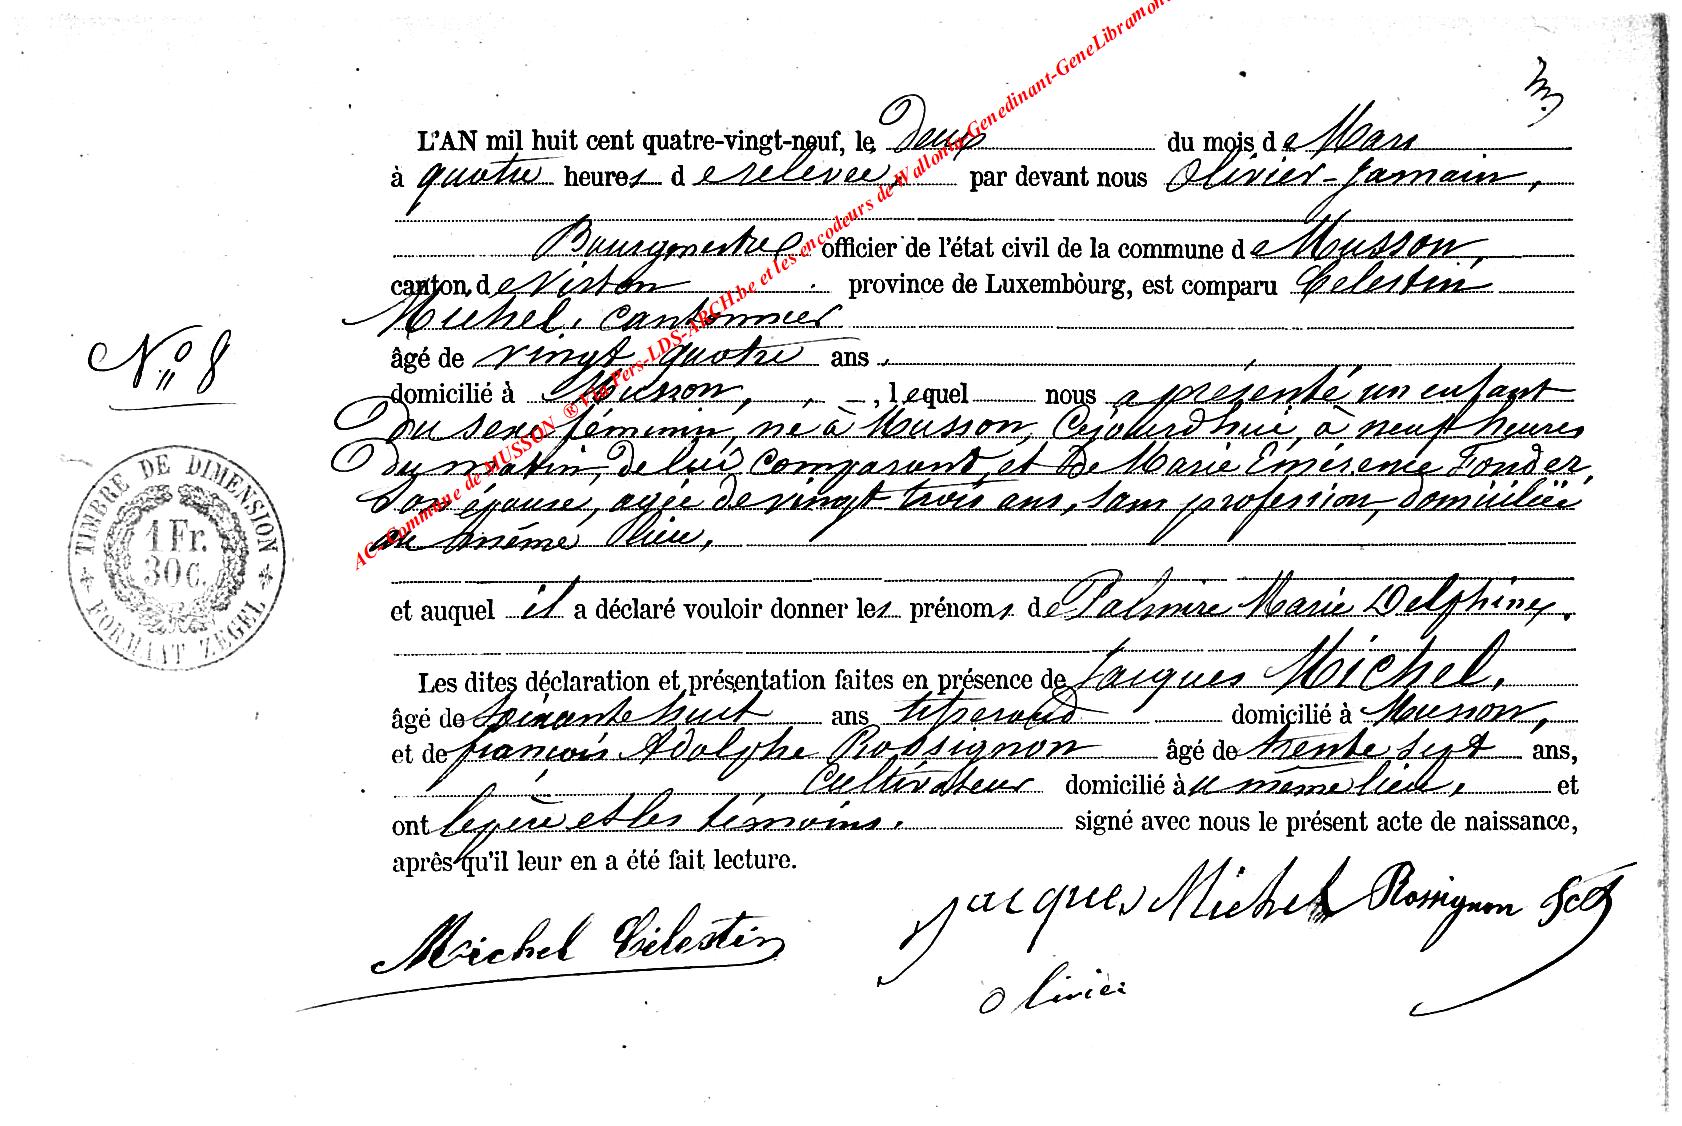 3
L'AN mil huit cent quatre-vingt-neuf, le Deux du mois de Mars
à quatre heures de relevée, par devant nous Olivier-Jamain,
Bourgmestre officier de l'état civil de la commune de Musson,
canton de Virton province de Luxembourg, est comparu Celestin
Michel, cantonnier
N° 8
âgé de vingt quatre ans,
domicilié à Musson, , lequel nous a présenté un enfant
Du sexe féminin, né à Musson, Cejourdhui, à neuf heures
Du matin, de lui comparant, et de Marie Emérence Fonder,
Son épouse, agée de vingt trois ans, sans profession, domiciliée
au même lieu.
TIMBRE DE DIMENSION
1 Fr.
30c.
FORMAAT ZEGEL
et auquel il a déclaré vouloir donner les prénoms de Palmire Marie Delphine.
Les dites déclaration et présentation faites en présence de Jacques Michel,
âgé de soixante huit ans tisserand domicilié à Musson,
et de françois Adolphe Rossignon âgé de trente sept ans,
Cultivateur domicilié au même lieu, et
ont le père et les témoins. signé avec nous le présent acte de naissance,
après qu'il leur en a été fait lecture.
Jacques Michel Rossignon
Michel Célestin
Olivier
AC-Commune de MUSSON ® Via Pers-LDS-ARCH.be et les encodeurs de Wallonia-Genedinant-GeneLibramont